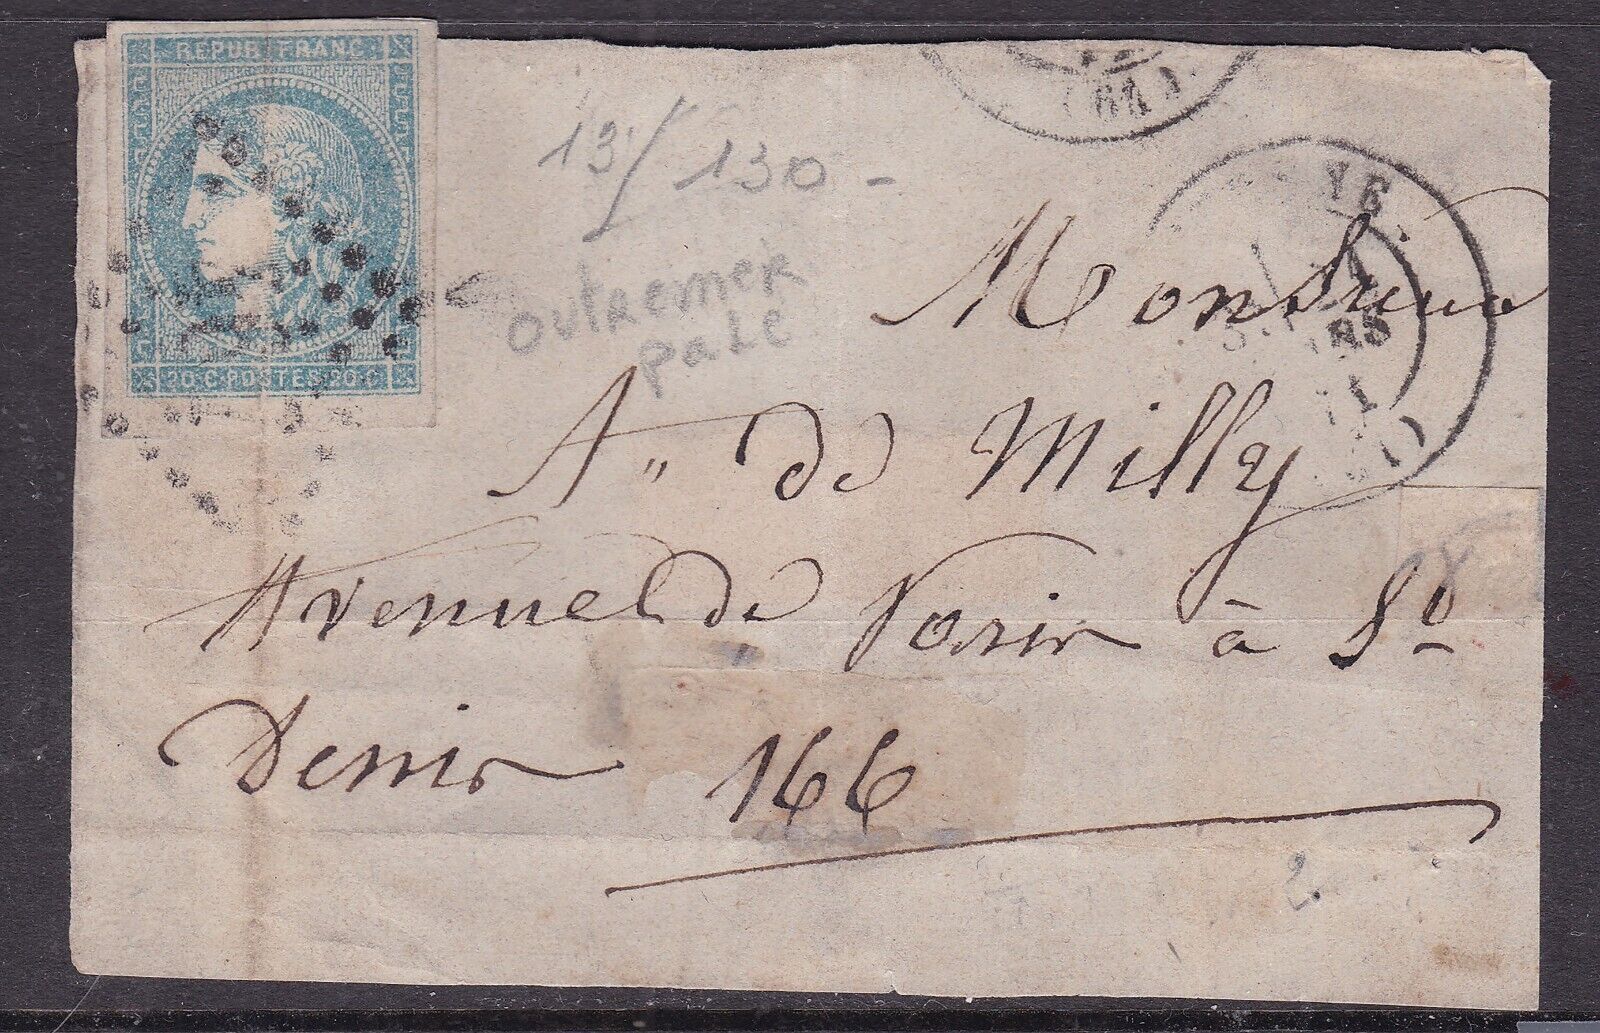 REPUB. FRANC.
20.C.POSTES.20.C
(60)
13/ 130 -
outremer
pale
YE
71
Monsieur
A" de Milly
Avenue de Paris à St
Denis 166